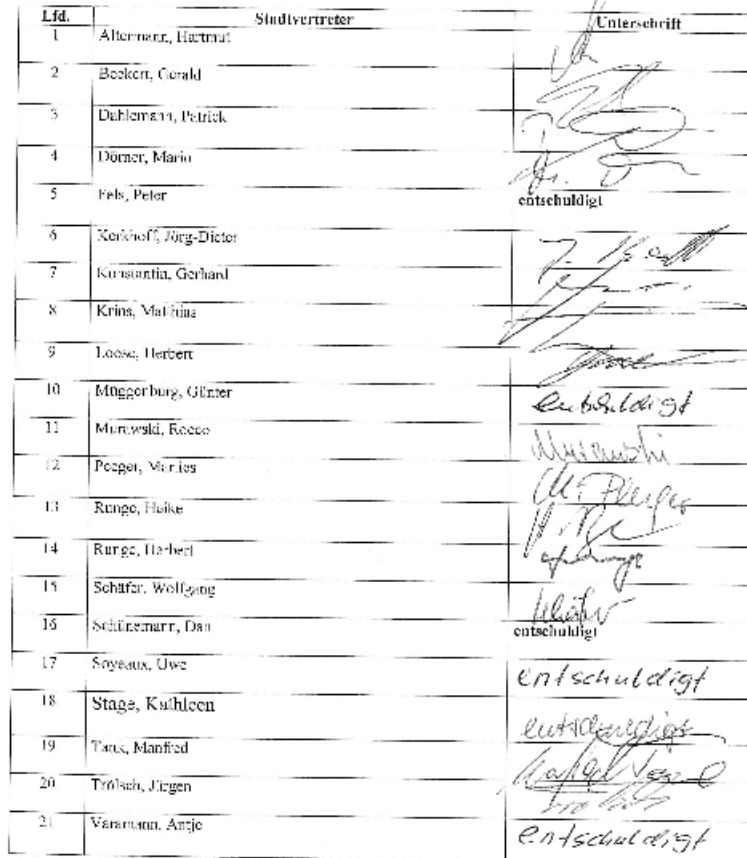 Lfd. Stadtvertreter Unterschrift
1 Altermann, Hartmut
2 Beckert, Gerald
3 Dahlemann, Patrick
4 Dörner, Mario
5 Fels, Peter entschuldigt
6 Kerkhoff, Jörg-Dieter
7 Konstantin, Gerhard
8 Krins, Matthias
9 Loose, Herbert
10 Müggenburg, Günter entschuldigt
11 Murawski, Rocco Murawski
12 Peeger, Marlies M. Peeger
13 Runge, Heike
14 Runge, Herbert
15 Schäfer, Wolfgang Schäfer
16 Schünemann, Dan entschuldigt
17 Soyeaux, Uwe entschuldigt
18 Stage, Kathleen entschuldigt
19 Tank, Manfred
20 Trölsch, Jürgen
21 Varamann, Antje entschuldigt